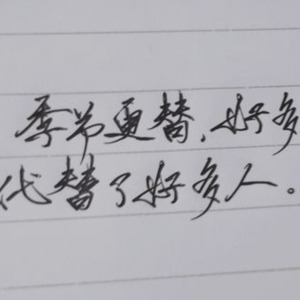 季节更替,好多
代替了好多人。